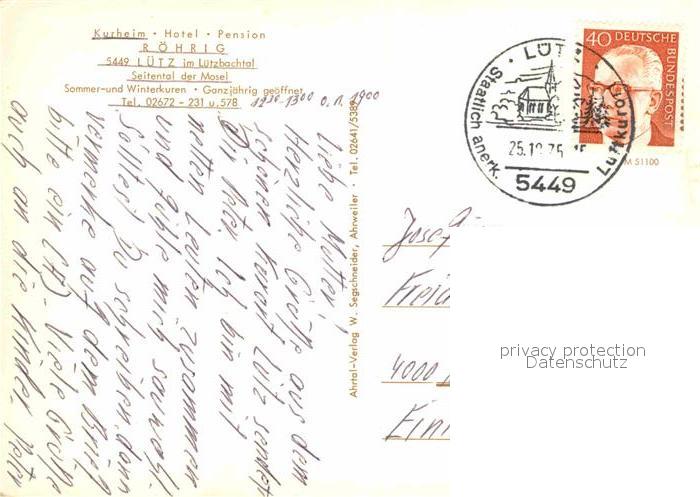 Kurheim · Hotel · Pension
RÖHRIG
5449 LÜTZ im Lützbachtal
Seitental der Mosel
Sommer-und Winterkuren · Ganzjährig geöffnet
Tel. 02672 - 231 u. 578
12³⁰-13⁰⁰ o. n. 19⁰⁰
Liebe Mutter,
Herzliche Grüße aus dem
schönen Kurort Lütz sendet
Dir Peter. Ich bin mit
netten Leuten zusammen
und fühle mich sauwohl.
Solltest Du schreiben, dann
vermerke auf dem Brief
bitte ein (A). Viele Grüße
auch an die Kinder. Peter
Ahrtal-Verlag W. Segschneider, Ahrweiler · Tel. 02641/5389
LÜTZ
Staatlich anerk.
Luftkurort
5449
40
DEUTSCHE
BUNDESPOST
M 51100
Josef
4000
privacy protection
Datenschutz